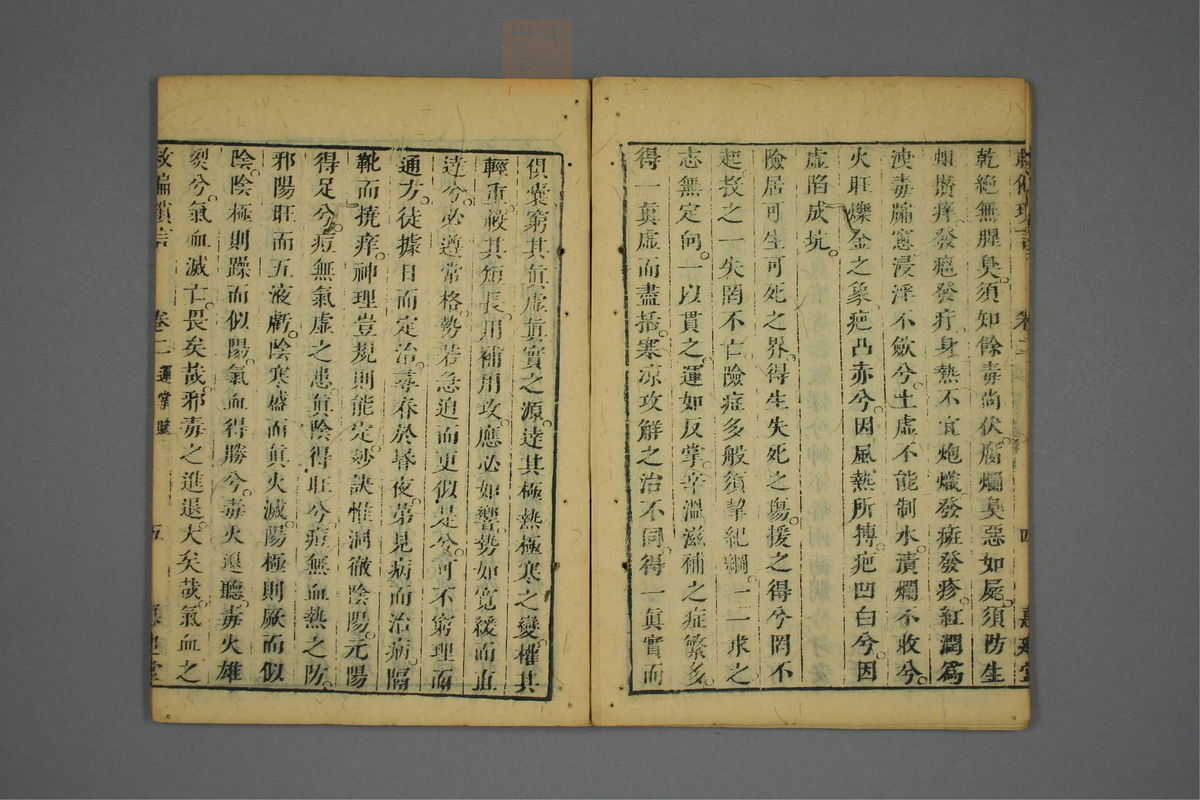 乾絶無腥臭。須知餘毒尚伏。腐爛臭惡如屍。須防生
蛆。擠痒發癌發疔。身熱不宜炮熾。發斑發疹。紅潤爲
毒牖。寖浸淫不斂兮。土虚不能制水。潰爛不收兮。
火旺爍金之象。疤凸赤兮。因風熱所搏。疤凹白兮。因
虚陷成坑。
險居可生可死之界。得生失死之傷。援之得兮罔不
起。投之一失罔不亡。險症多般須挈紀綱。一一求之
志無定向。一以貫之。運如反掌。辛溫滋補之症繁多。
得一眞虚而盡括。寒凉攻解之治不同。得一眞實而
俱囊。窮其眞虚眞實之源。達其極熱極寒之變。權其
輕重。較其短長。用補用攻。應必如響。勢如寛緩而直
達兮。必遵常格。勢若急迫而更似是兮。可不窮理而
通方。徒據日而定治。尋春於昏夜。第見病而治病。隔
靴而撓痒。神理豈規則能定。妙訣惟洞徹陰陽。元陽
得足兮。痘無氣虚之患。眞陰得旺兮。痘無血熱之防。
邪陽旺而五液虧。陰寒盛而眞火滅。陽極則厥而似
陰。陰極則躁而似陽。氣血得勝兮。毒火退聽。毒火雄
裂兮。氣血滅亡。畏矣哉。邪毒之進退。大矣哉。氣血之
救偏瑣言 卷二 運掌賦 五